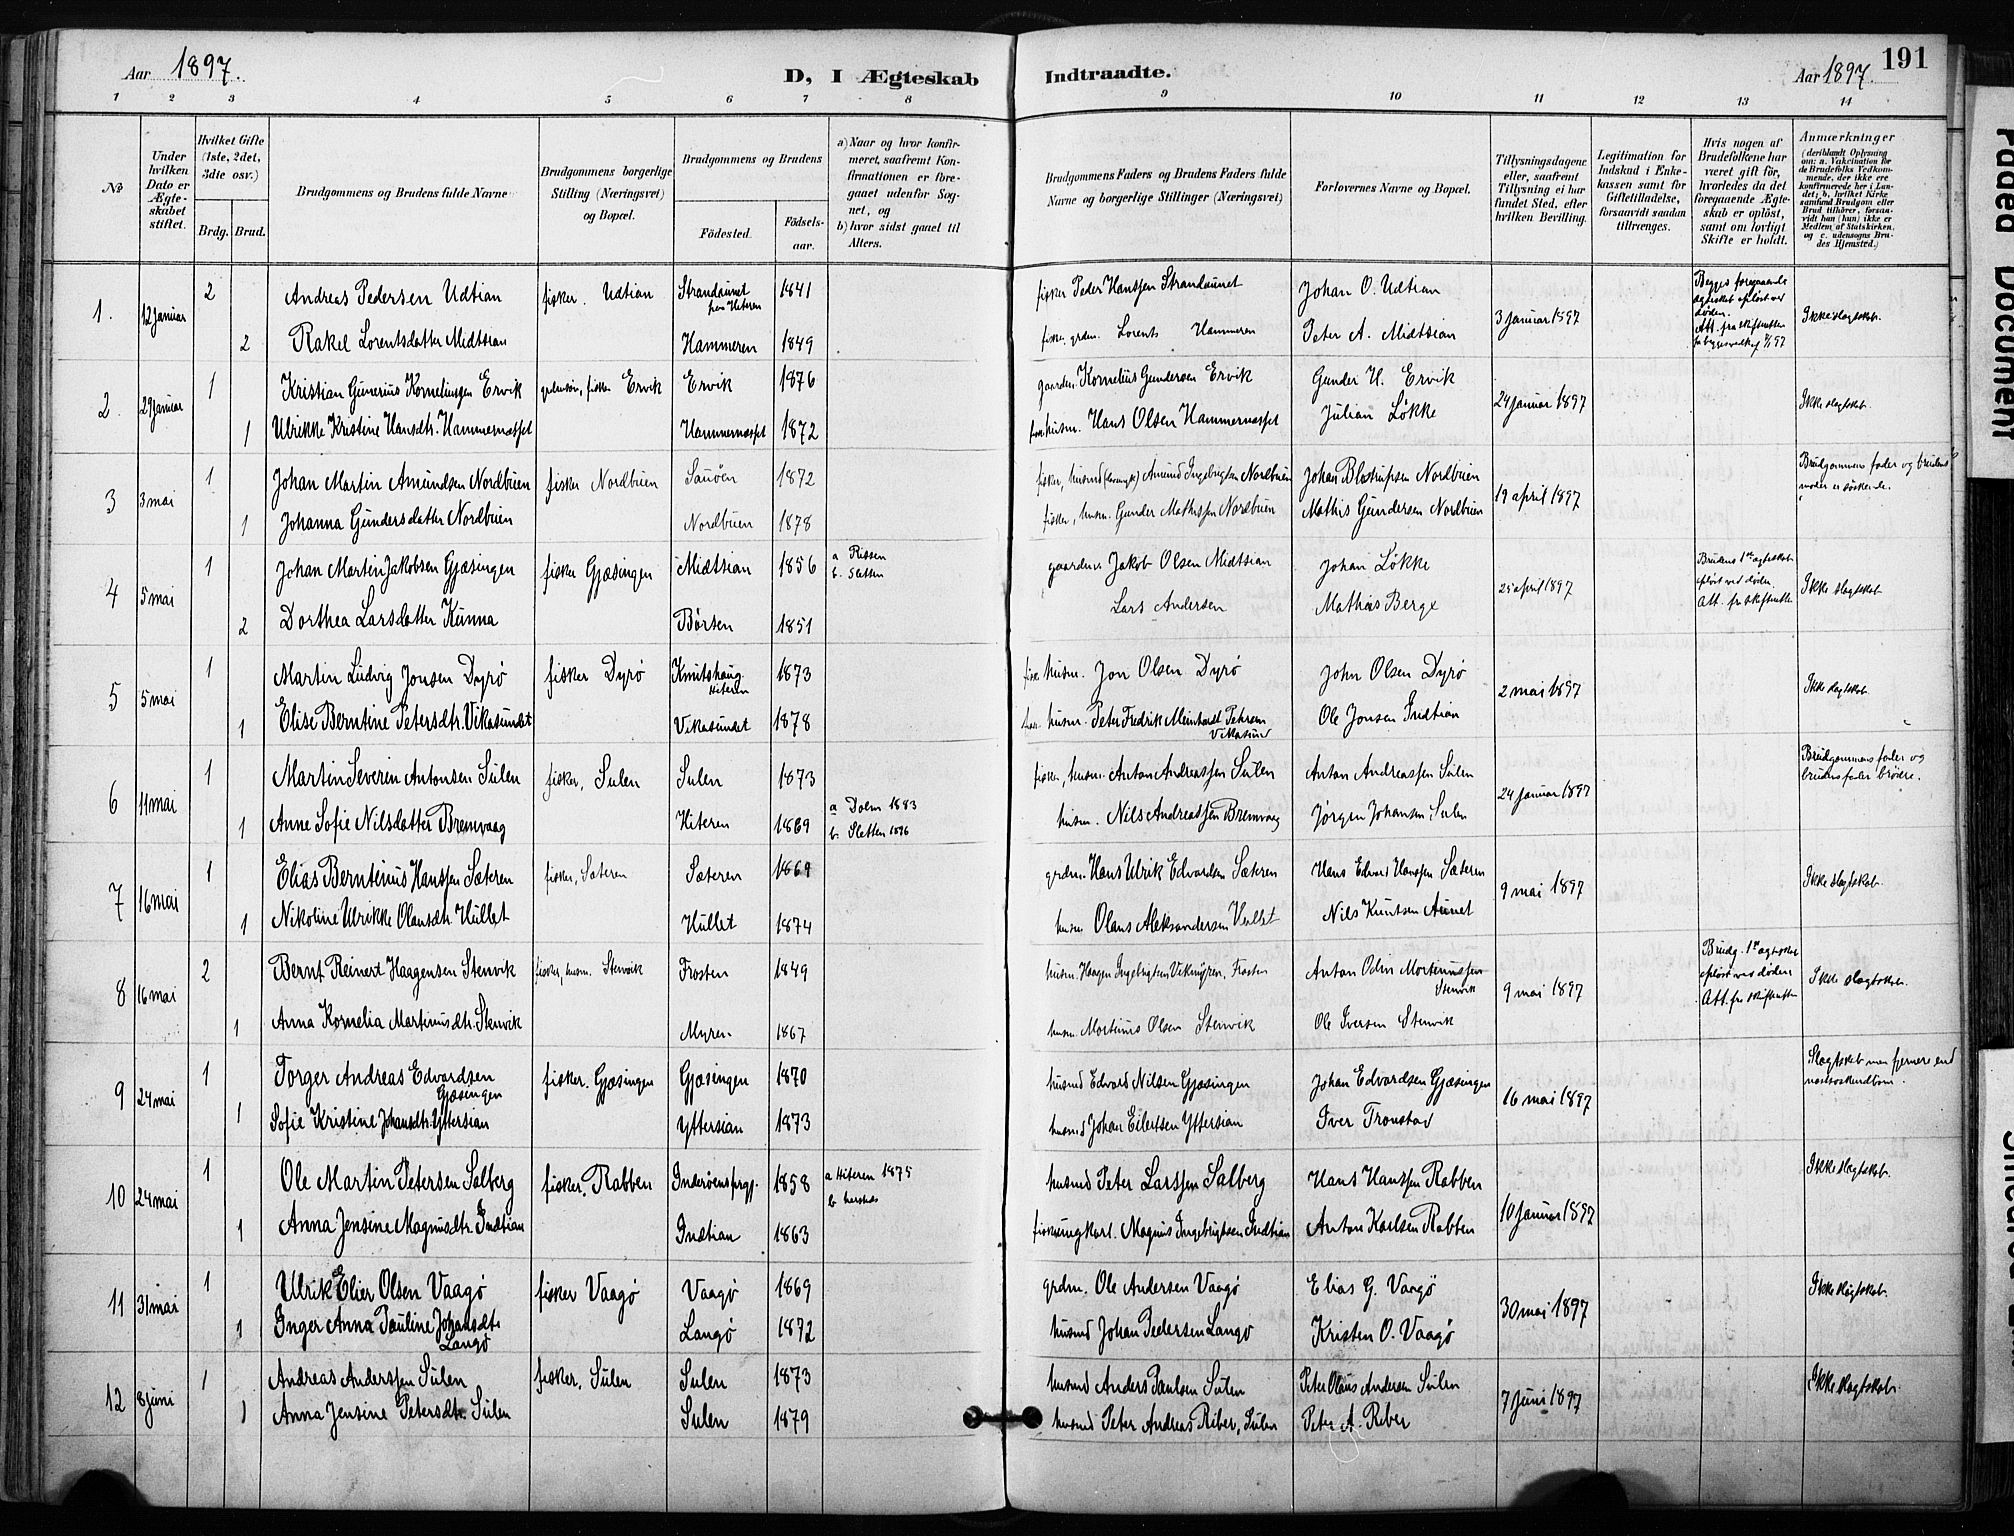 Aar 1897.
D, I Ægteskab Indtraadte.
Aar 1897. 191
1 2 3 4 5 6 7 8 9 10 11 12 13 14
No
Under hvilken Dato er Ægteskabet stiftet.
Hvilket Gifte (1ste, 2det, 3die osv.)
Brdg. Brud.
Brudgommens og Brudens fulde Navne
Brudgommens borgerlige Stilling (Næringsvei) og Bopæl.
Brudgommens og Brudens
Fødested. Fødselsaar.
a) Naar og hvor konfirmeret, saafremt Konfirmationen er foregaaet udenfor Sognet, og
b) hvor sidst gaaet til Alters.
Brudgommens Faders og Brudens Faders fulde Navne og borgerlige Stillinger (Næringsvei)
Forlovernes Navne og Bopæl.
Tillysningsdagene eller, saafremt Tillysning ei har fundet Sted, efter hvilken Bevilling.
Legitimation for Indskud i Enkekassen samt for Giftetilladelse, forsaavidt saadan tiltrænges.
Hvis nogen af Brudefolkene har været gift før, hvorledes da det foregaaende Ægteskab er opløst, samt om lovligt Skifte er holdt.
Anmærkninger (deriblandt Oplysning om: a. Vakcination for de Brudefolks Vedkommende, der ikke ere konfirmerede her i Landet; b. hvilket Kirkesamfund Brudgom eller Brud tilhører, forsaavidt han (hun) ikke er Medlem af Statskirken, og c. udensogns Brudes Hjemsted.)
1. 12 januar 2 Andreas Pedersen Udtian fisker. Udtian Strandaunet paa Hiteren 1841 fisker Peder Hanssen Strandaunet Johan O. Udtian 3 januar 1897 Begges foregaaende ægteskab opløst ved døden. Att. fra skifteretten Ikke slægtskab.
2 Rakel Lorentsdatter Midtsian Hammeren 1849 fisker, grdm. Lorents Hammeren Peter A. Midtsian
2. 29 januar 1 Kristian Gunerius Korneliussen Ervik fisker Ervik Ervik 1876 gaardm. Kornelius Gundersen Ervik Gunder H. Ervik 24 januar 1897 Ikke slægtskab.
1 Ulrikke Kristine Hansdtr. Hammernæsset Hammernæsset 1872 husm. Hans Olsen Hammernæsset Julian Løkke
3 3 mai 1 Johan Martin Amundsen Nordbuen fisker Nordbuen Sauøen 1872 fisker, husmd Amund Ingebrigtsen Nordbuen Johan Blostrupsen Nordbuen 19 april 1897 Brudgommens fader og brudens moder er søskende.
1 Johanna Gundersdatter Nordbuen Nordbuen 1878 fisker, husm. Gunder Mathissen Nordbuen Mathis Gundersen Nordbuen
4 5 mai 1 Johan Martin Jakobsen Gjæsingen fisker Gjæsingen Midtsian 1856 a Rissen b. Sletten gaardm. Jakob Olsen Midtsian Johan Løkke 25 april 1897 Brudens 1ste ægteskab opløst ved døden. Att. fra skifteretten Ikke slægtskab
2 Dorthea Larsdatter Kunna Børsen 1851 Lars Andersen Mathias Berge
5 5 mai 1 Martin Ludvig Jonsen Dyrø fisker Dyrø Knutshaug Hiteren 1873 husm. Jon Olsen Dyrø John Olsen Dyrø 2 mai 1897 Ikke slægtskab.
1 Elise Berntine Petersdtr. Vikasundet Vikasundet 1878 husm. Peter Fredrik Meinhardt Pehrsen Vikasund Ole Jonsen Indtian
6 11 mai 1 Martin Severin Antonsen Sulen fisker, Sulen Sulen 1873 fisker, husm. Anton Andreassen Sulen Anton Andreassen Sulen 24 januar 1897 Brudgommens fader og brudens fader brødre.
1 Anne Sofie Nilsdatter Bremvaag Hiteren 1869 a Dolm 1883 b. Sletten 1896 husm. Nils Andreassen Bremvaag Jørgen Johansen Sulen
7 16 mai 1 Elias Berntinus Hanssen Sæteren fisker, Sæteren Sæteren 1869 grdm. Hans Ulrik Edvardsen Sæteren Hans Edvard Hanssen Sæteren 9 mai 1897 Ikke slægtskab.
1 Nikoline Ulrikke Olausdtr. Hullet Hullet 1874 husm Olaus Aleksandersen Hullet Nils Knutsen Aunet
8 16 mai 2 Bernt Reinert Haagensen Stenvik fisker, husm. Stenvik Frosten 1849 husm. Haagen Ingebrigtsen Vikmyren, Frosten Anton Odin Mortenussen Stenvik 9 mai 1897 Brudg. 1ste ægteskab opløst ved døden Att. fra skifteretten Ikke slægtskab.
1 Anna Kornelia Martinusdtr. Stenvik Myren 1867 husm. Mortinus Olsen Stenvik Ole Iversen Stenvik
9 24 mai 1 Torger Andreas Edvardsen Gjæsingen fisker. Gjæsingen Gjæsingen 1870 husmd Edvard Nilsen Gjæsingen Johan Edvardsen Gjæsingen 16 mai 1897 Slægtskab men fjernere end næstsøskendbarn.
1 Sofie Kristine Johansdtr. Yttersian Yttersian 1873 husmd Johan Eilertsen Yttersian Iver Tronstad
10 24 mai 1 Ole Martin Petersen Salberg fisker. Rabben Inderøens prgj. 1858 a Hiteren 1875 b. hersteds husmd Peter Larssen Salberg Hans Hanssen Rabben 10 januar 1897 Ikke slægtskab.
1 Anna Jensine Magnusdtr. Indtian Indtian 1863 Magnus Ingebrigtsen Indtian Anton Karlsen Rabben
11 31 mai 1 Ulrik Elier Olsen Vaagø fisker Vaagø Vaagø 1869 grdm. Ole Andersen Vaagø Elias G. Vaagø 30 mai 1897 Ikke slægtskab.
1 Inger Anna Pauline Johansdtr Langø Langø 1872 husmd Johan Pedersen Langø Kristen O. Vaagø
12 8 juni 1 Andreas Anderssen Sulen fisker, Sulen Sulen 1873 husmd Anders Paulsen Sulen Peter Olaus Andersen Sulen 7 juni 1897 Ikke slægtskab.
1 Anna Jensine Petersdtr. Sulen Sulen 1879 husmd Peter Andreas Riber, Sulen Peter A. Riber